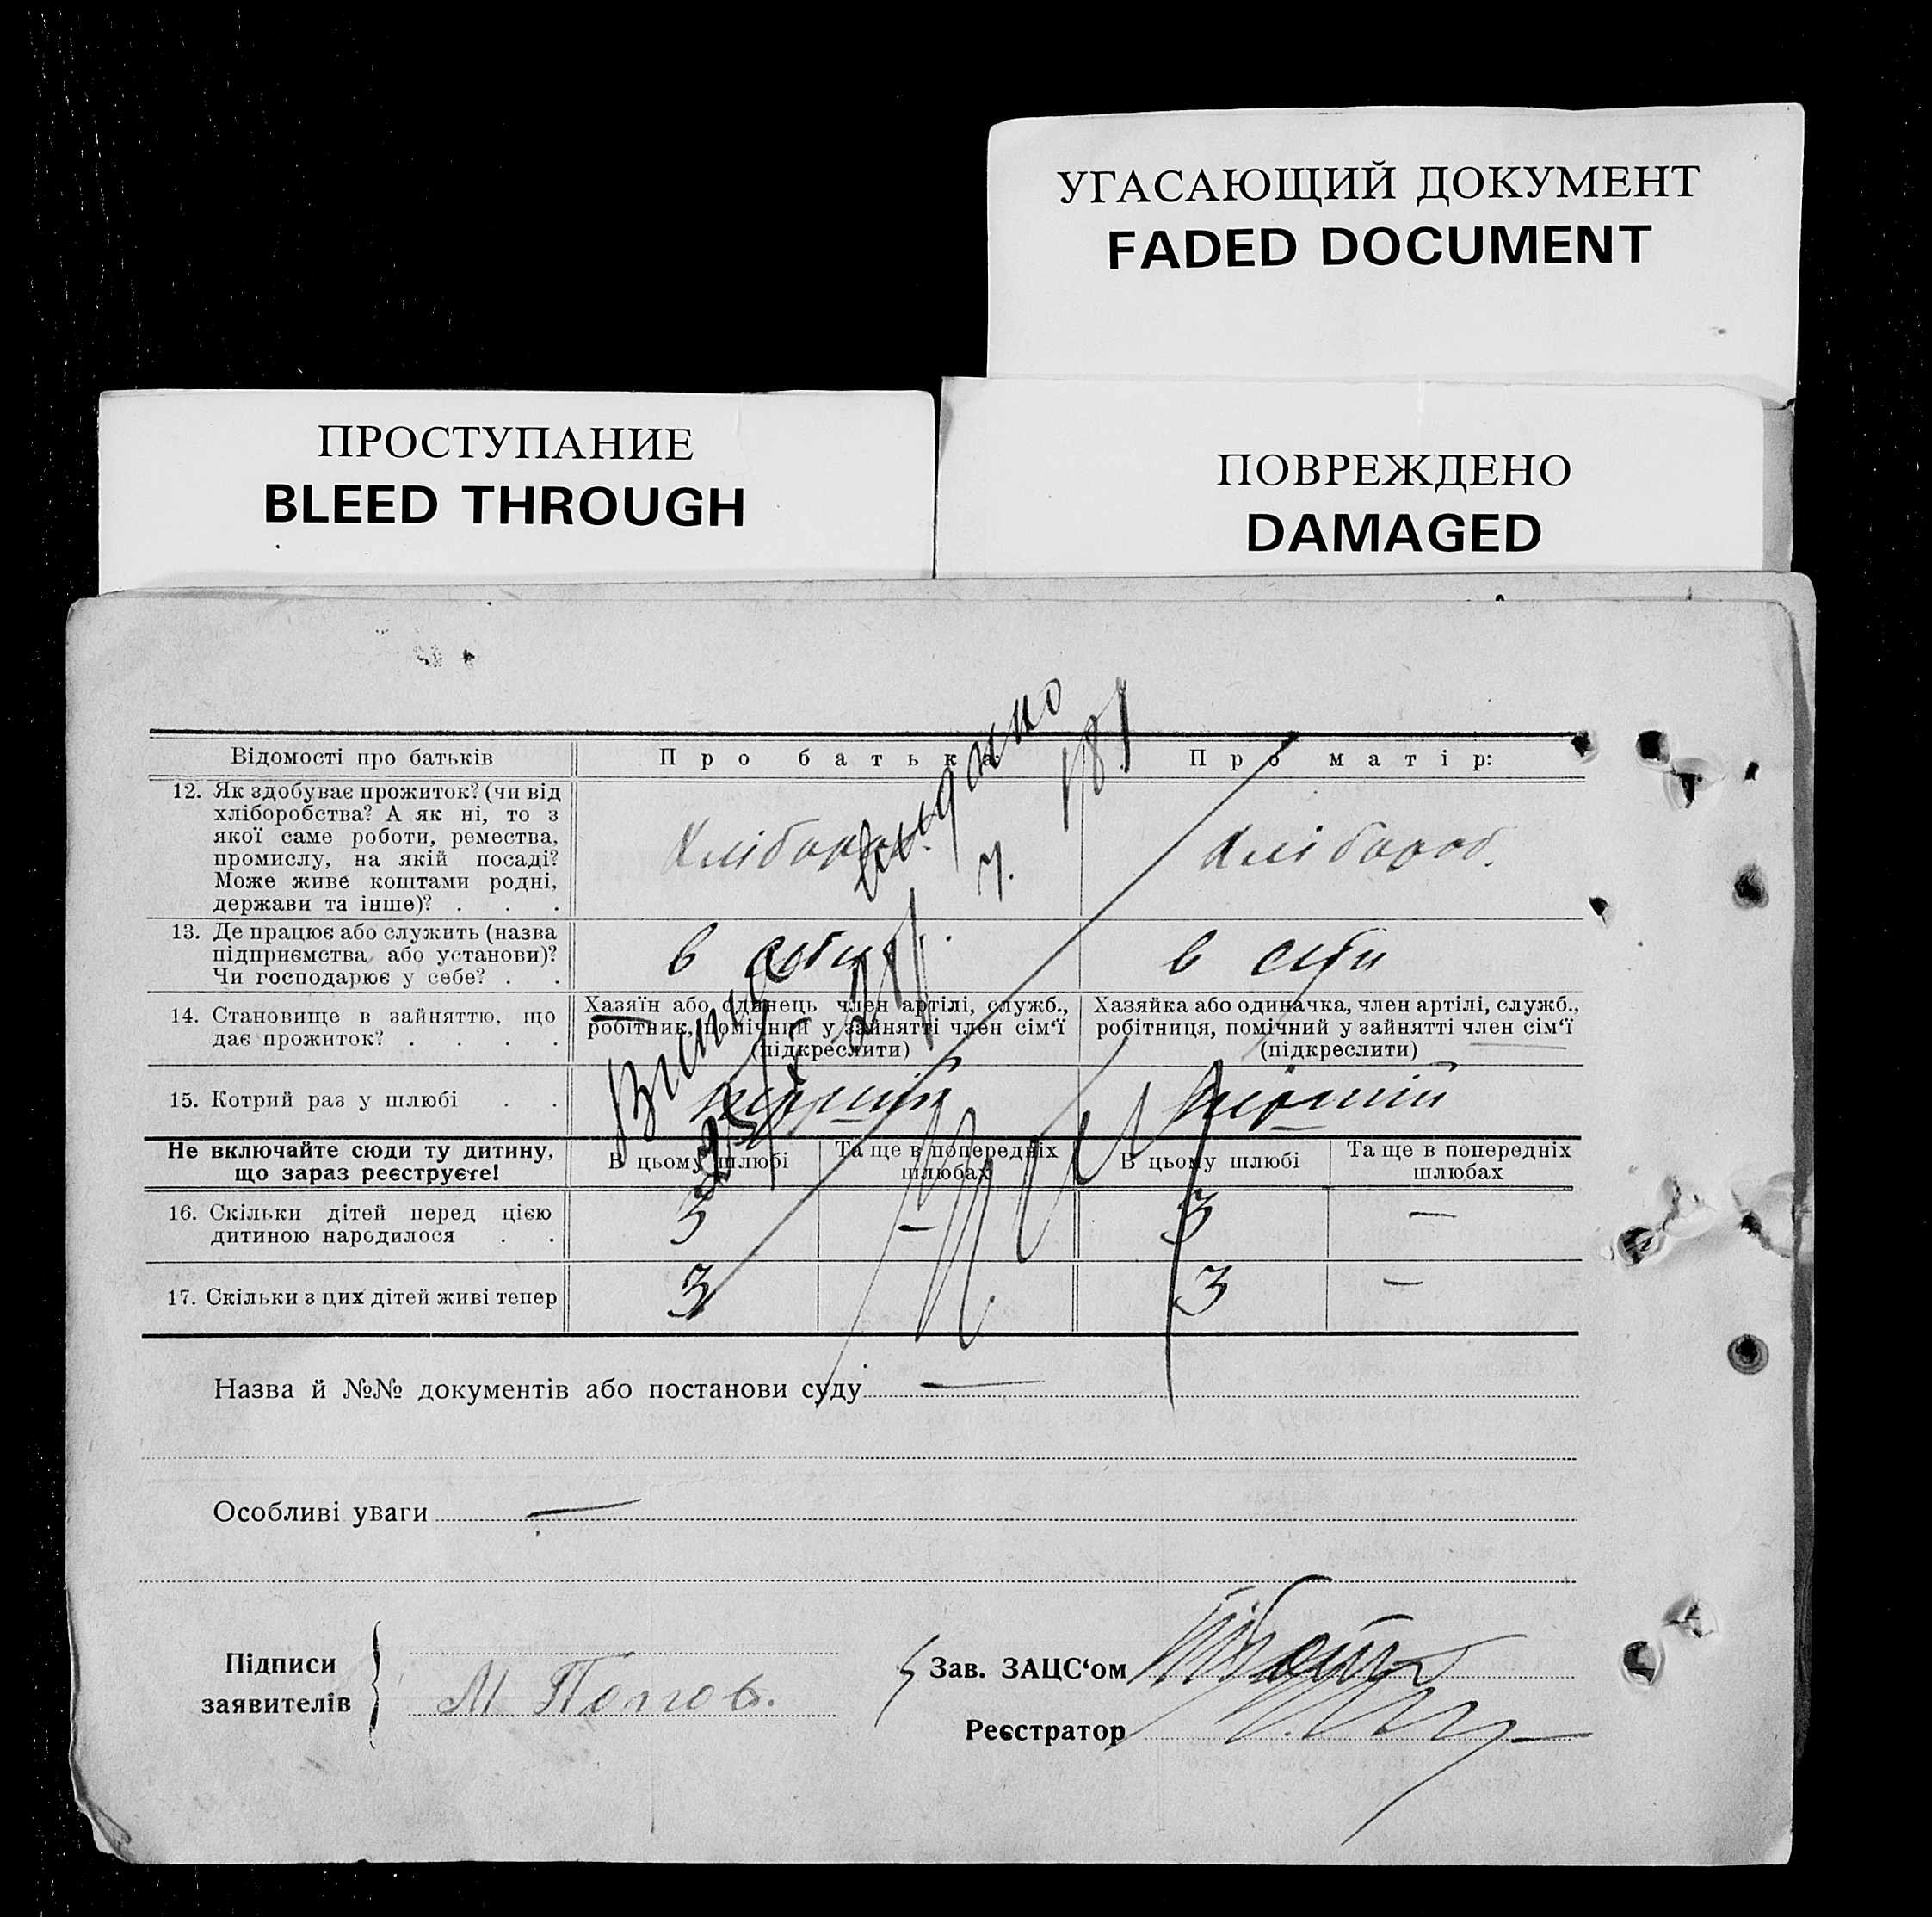 УГАСАЮЩИЙ ДОКУМЕНТ
FADED DOCUMENT
ПРОСТУПАНИЕ
BLEED THROUGH
ПОВРЕЖДЕНО
DAMAGED
Відомості про батьків
Про батька
Про матір:
12. Як здобуває прожиток? (чи від
хліборобства? А як ні, то з
якої саме роботи, ремества,
промислу, на якій посаді?
Може живе коштами родні,
держави та інше)? . . .
Хлібороб.
Хлібороб.
13. Де працює або служить (назва
підприємства або установи)?
Чи господарює у себе? . .
в
в
14. Становище в зайняттю, що
дає прожиток? . . . .
Хазяїн або одинець член артілі, служб.,
робітник, помічний у зайнятті член сім‘ї
(підкреслити)
Хазяйка або одиначка, член артілі, служб.,
робітниця, помічний у зайнятті член сім‘ї
(підкреслити)
15. Котрий раз у шлюбі . .
Не включайте сюди ту дитину,
що зараз реєструєте!
В цьому шлюбі
Та ще в попередніх
шлюбах
В цьому шлюбі
Та ще в попередніх
шлюбах
16. Скільки дітей перед цією
дитиною народилося . .
3
—
3
—
17. Скільки з цих дітей живі тепер
3
3
—
Назва й №№ документів або постанови суду —
Особливі уваги —
Підписи
заявителів
М Попов.
Зав. ЗАЦС‘ом
Реєстратор